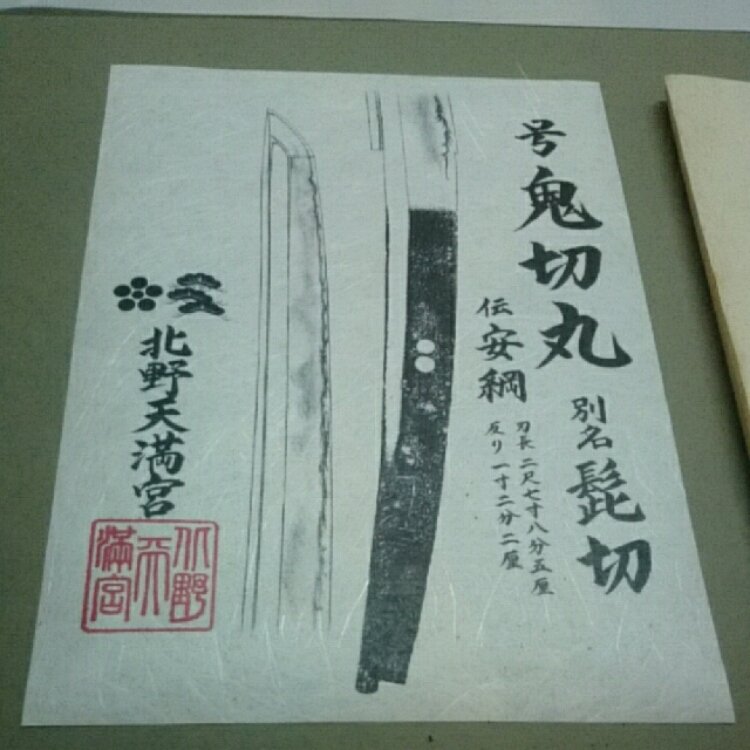 号 鬼切丸
別名 髭切
伝 安綱
刃長 二尺七寸八分五厘
反り 一寸二分二厘
北野天満宮
北野天満宮